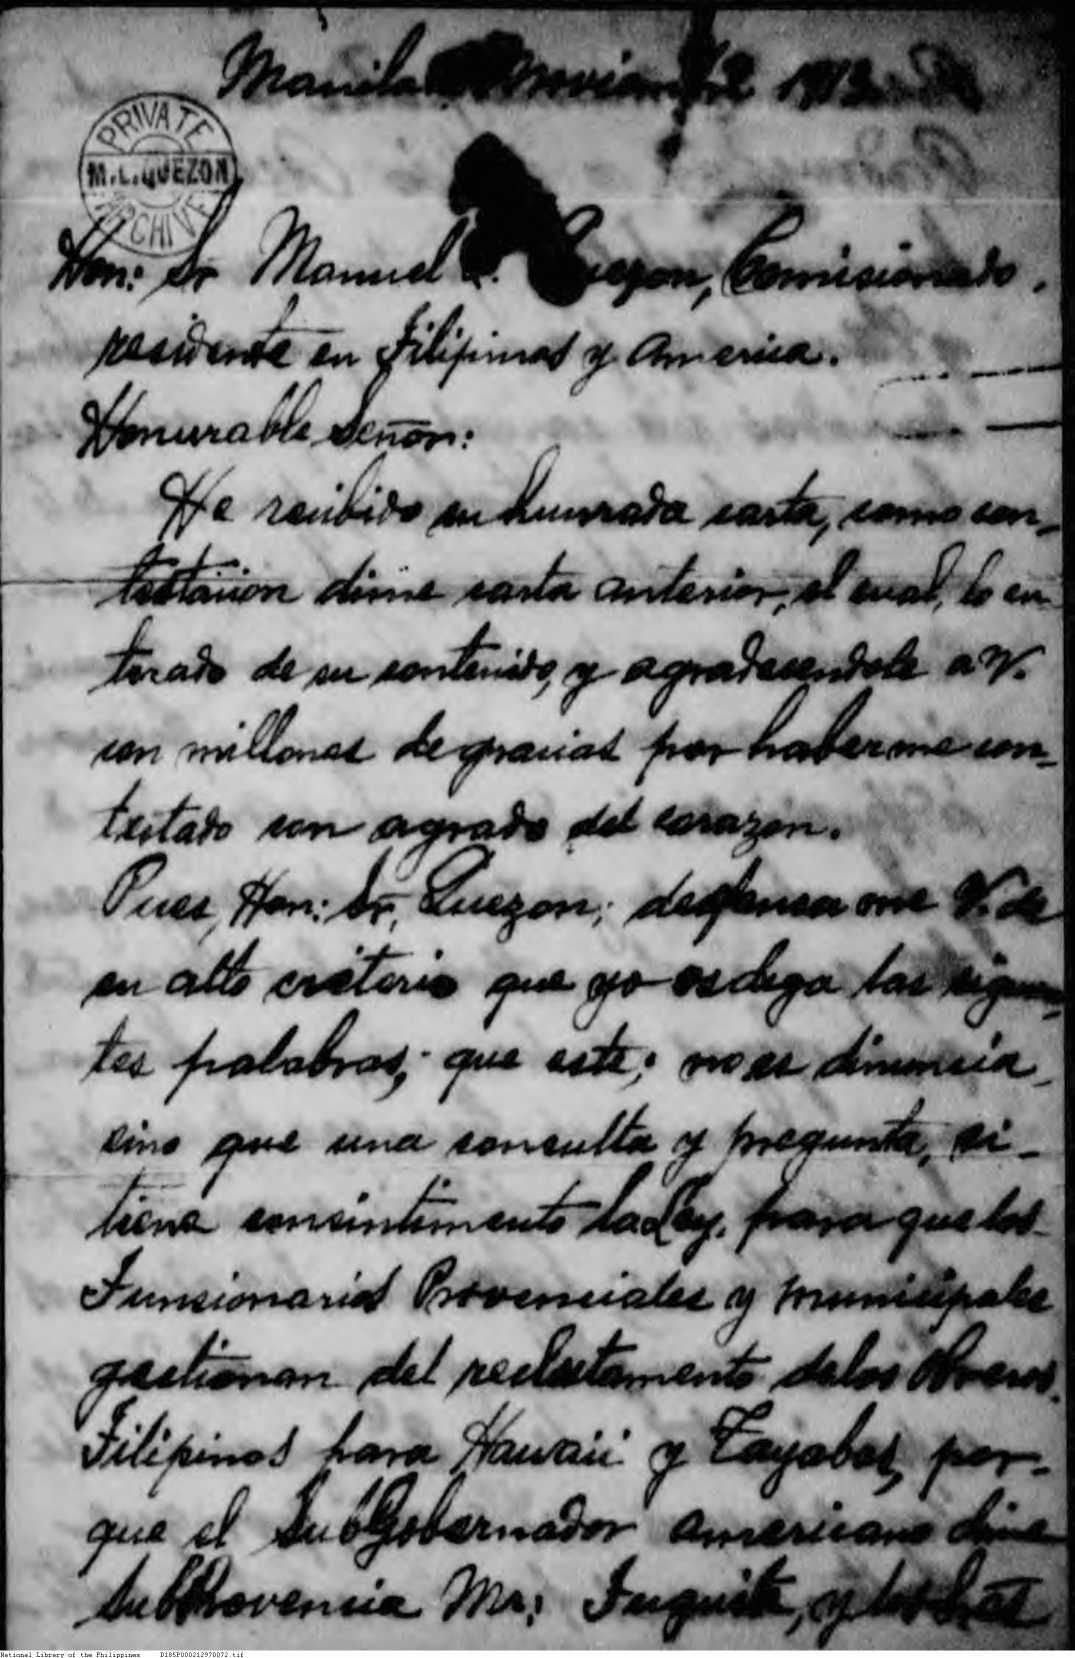 Manila Noviembre 1913
PRIVATE
M.L.QUEZON
ARCHIVE
Hon: Sr Manuel L. Quezon, Comisionado
residente en Filipinas y America.
Honurable Señor:
He recibido su hunrada carta, como con-
testacion dime carta anterior, el cual, lo en
terado de su contenido, y agradesendole a V.
con millones de gracias por haberme con-
testado con agrado del corazon.
Pues, Hon: Sr, Quezon; despensa me V. de
su alto criterio que yo os dega las siguen
tes palabras; que este; no es dinuncia
sino que una consulta y pregunta, si-
tiene consintimento la Ley, para que los
Funsionarios Provenciales y Municipales
gestionan del reclutamento delos Obreros
Filipinos para Hawaii y Tayabas, por-
que el SubGobernador americano dime
SubProvencia Mr; y los
National Library of the Philippines D185P000212970072.tif